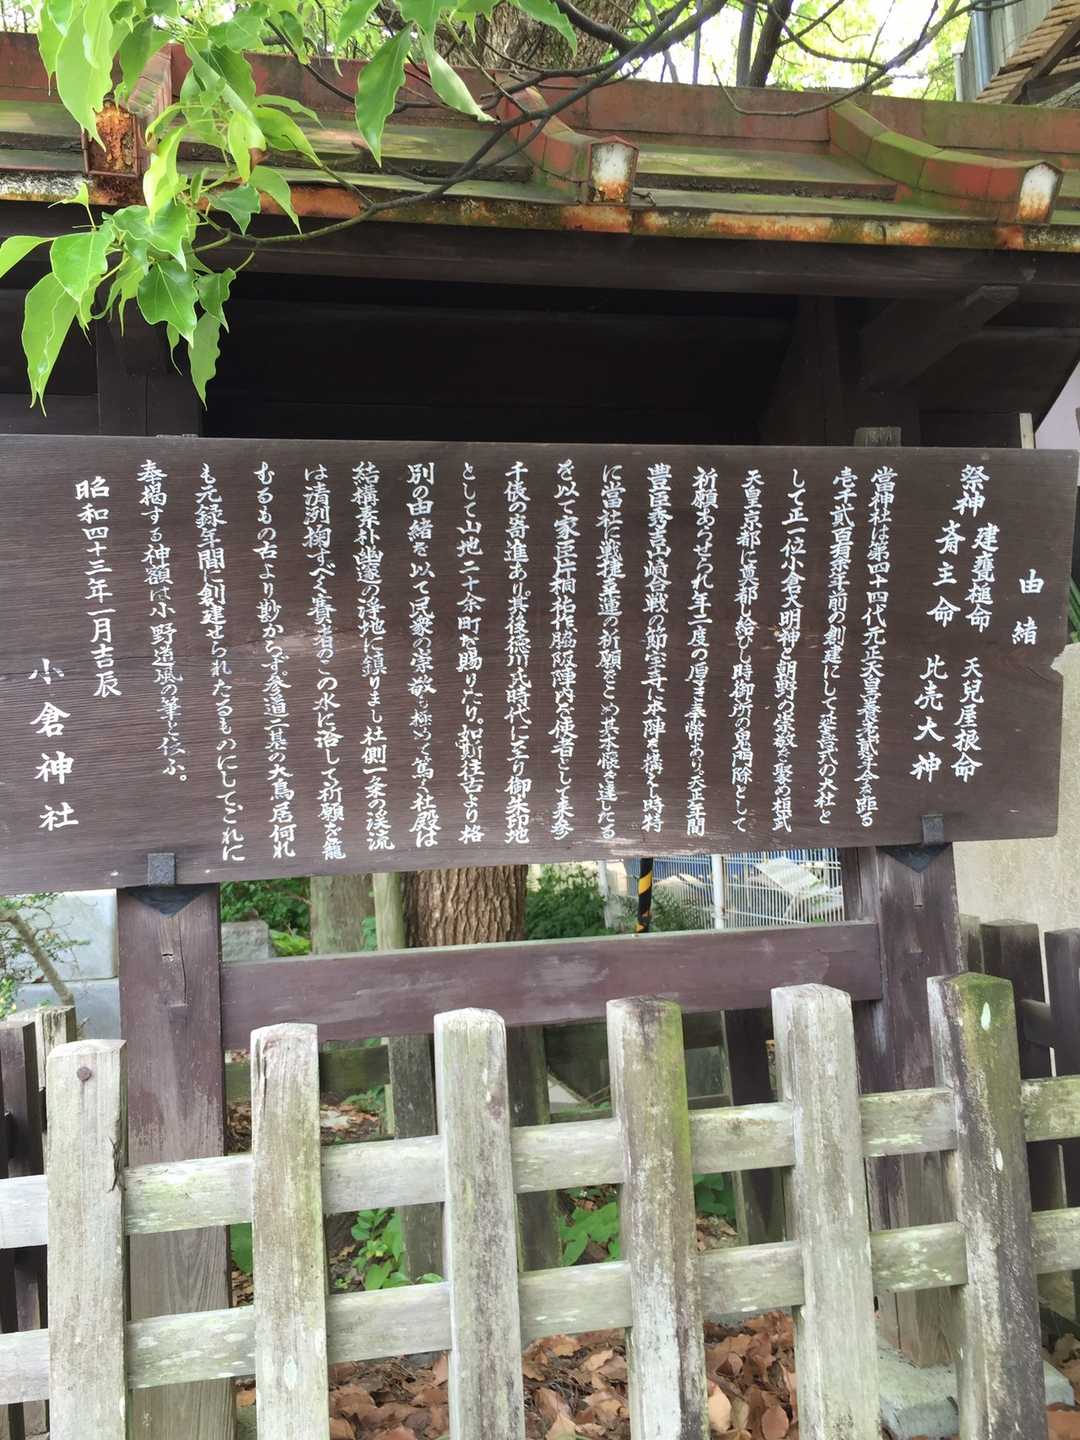 由緒
祭神 建甕槌命 天兒屋根命
斎主命 比売大神
當神社は第四十四代元正天皇養老貳年今を距る
壱千貳百有余年前の創建にして延喜式の大社と
して正一位小倉大明神と朝野の崇敬を聚め桓武
天皇京都に奠都し給ひし時御所の鬼門除として
祈願あらせられ年二度の 奉幣あり。天正年間
豊臣秀吉山崎合戦の節宝寺に本陣を構へし時特
に當社に戦捷幸運の祈願をこめ其本懐を達したる
を以て家臣片桐祐作脇阪陣内を使者として来参
千俵の寄進あり。其後徳川氏時代に至り御朱印地
として山地二十余町を賜りたり。如斯往古より格
別の由緒を以て民衆の崇敬も極めて篤く社殿は
結構素朴幽邃の浄地に鎮りまし社側一条の渓流
は清洌掬すべく貴者のこの水に浴して祈願を籠
むるもの古より尠からず。参道二基の大鳥居何れ
も元録年間に創建せられたるものにして、これに
奉掲する神額は小野道風の筆と伝ふ。
昭和四十三年一月吉辰
小倉神社